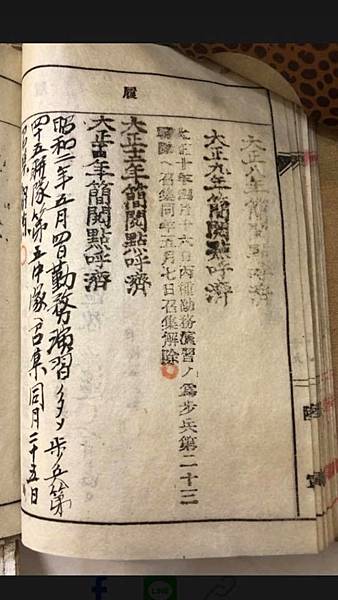 履
大正八年簡閲點呼濟
大正九年簡閲點呼濟
大正十年四月十六日丙種勤務演習ノ爲歩兵第二十三
聯隊ヘ召集同年五月七日召集解除
大正十二年簡閲點呼濟
大正十四年簡閲點呼濟
昭和二年五月四日勤務演習ノタメ歩兵第
四十五聯隊第五中隊ニ召集同月二十五日
召集解除
陸
LINE